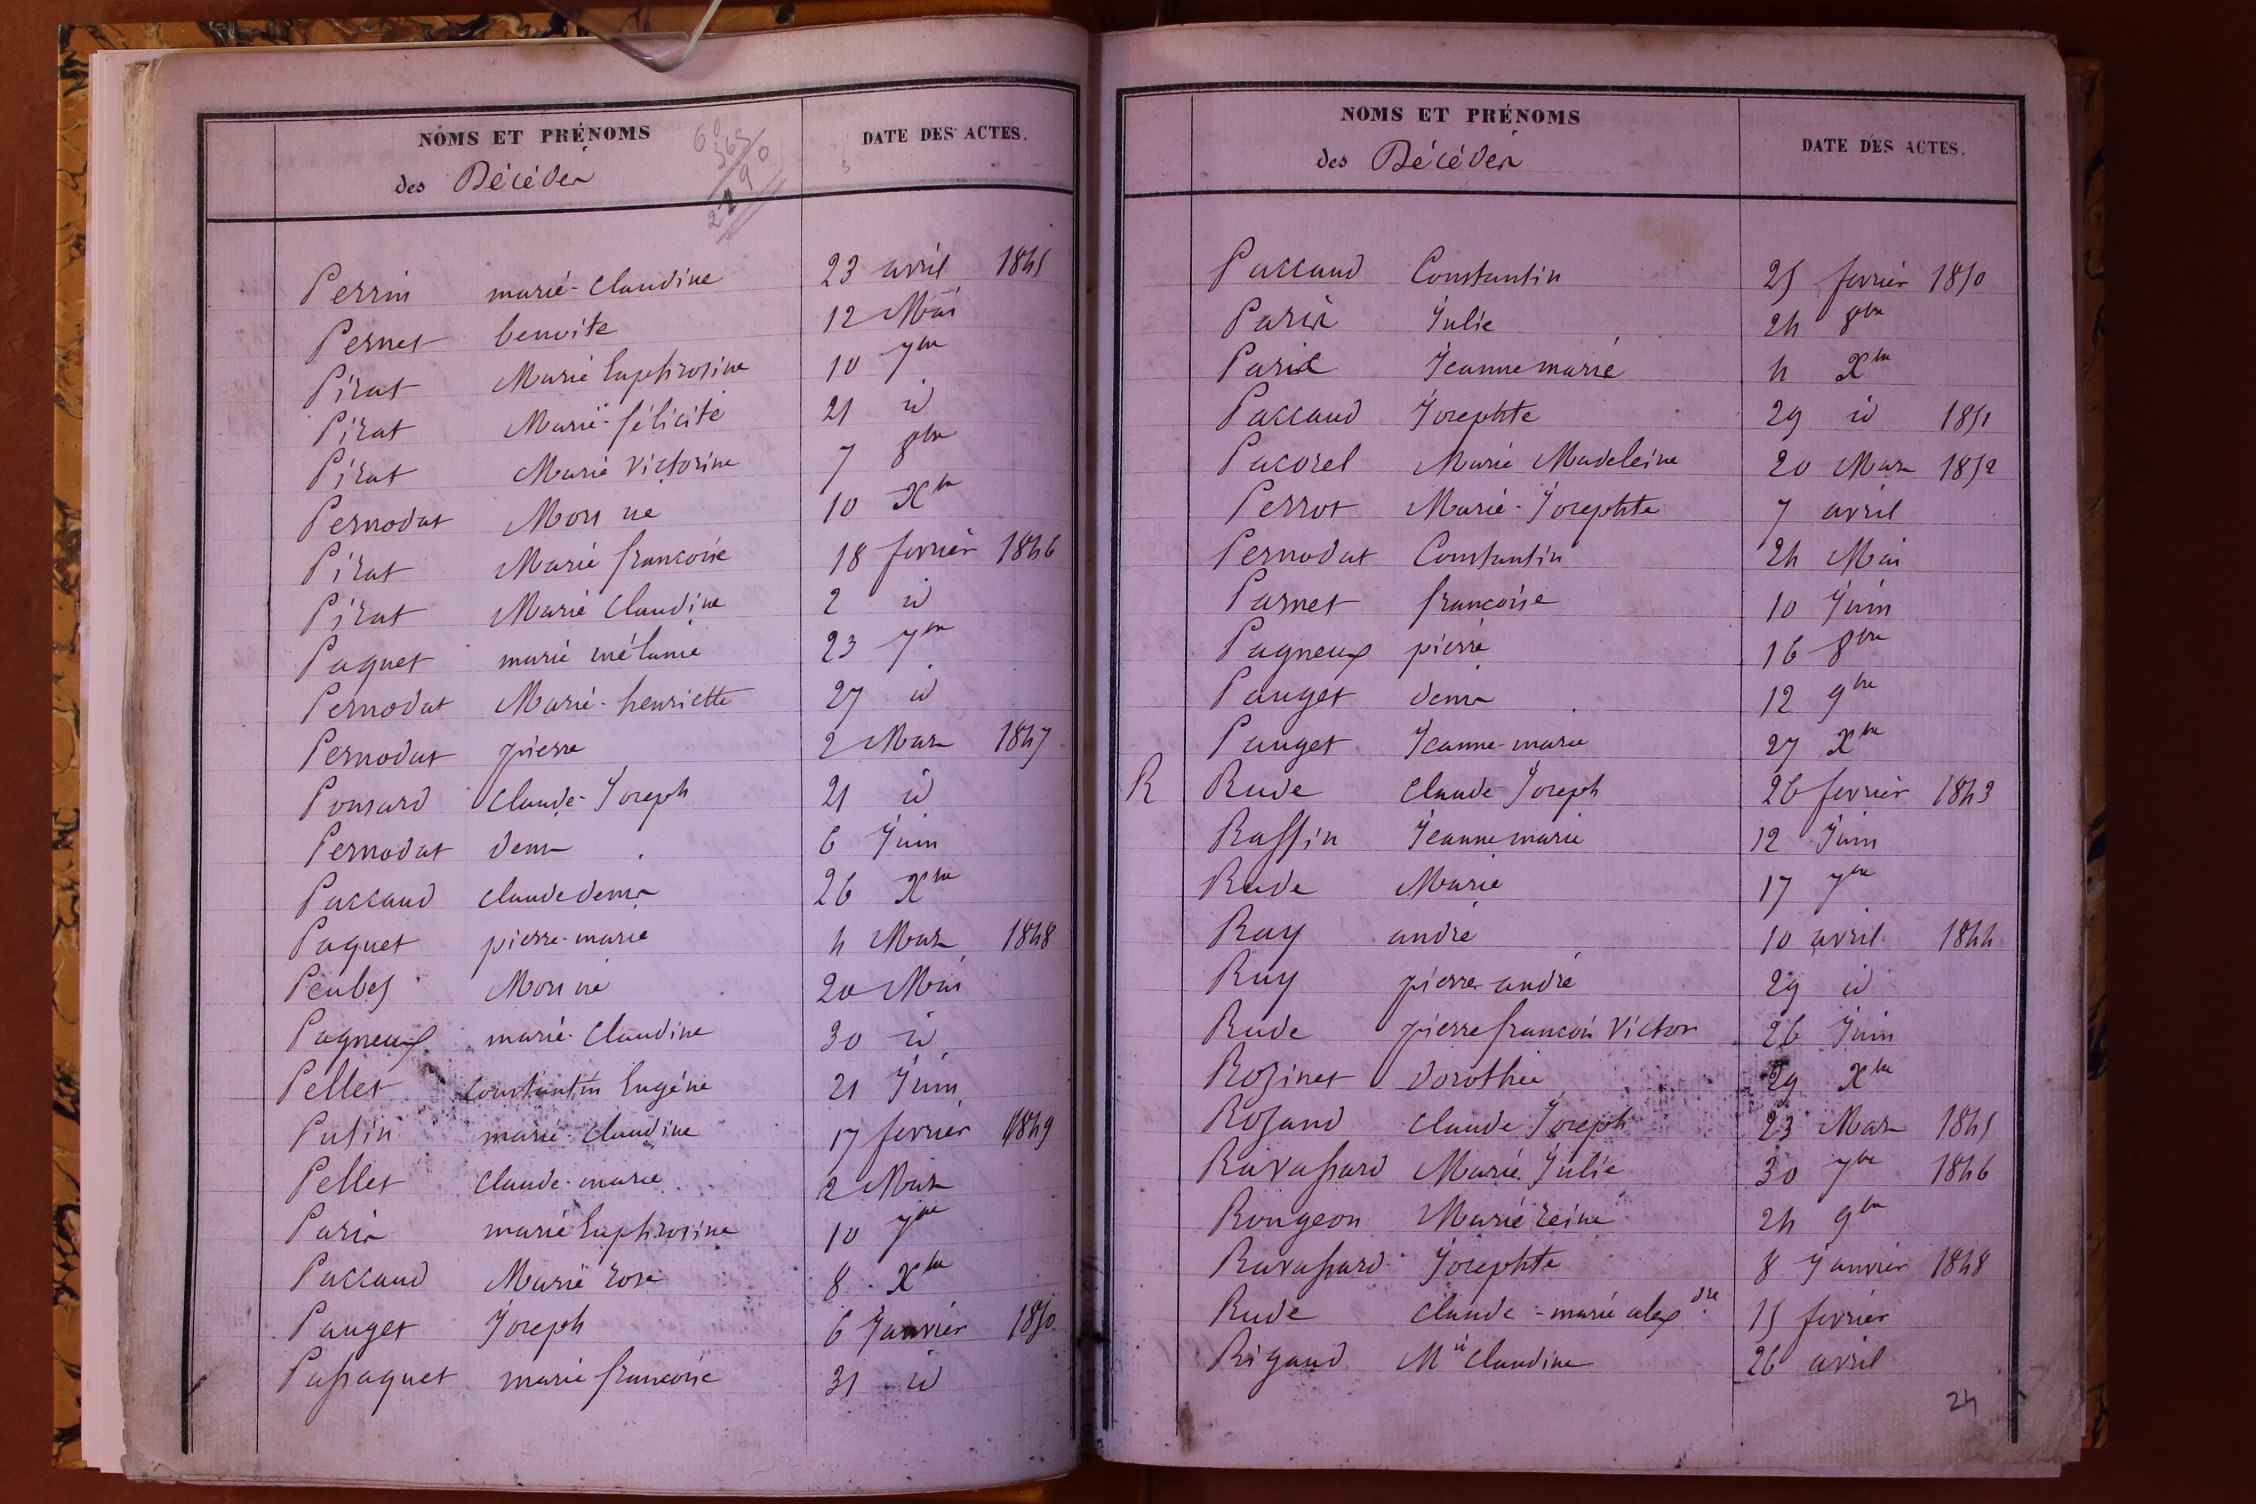 NOMS ET PRÉNOMS
des Décédés
DATE DES ACTES.
Perrin marie-Claudine 23 avril 1845
Pernet benoite 12 Mai
Pirat Marie Euphrosine 10 7bre
Pirat Marie-félicité 21 id
Pirat Marie Victorine 7 8bre
Pernodat Mors né 10 Xbre
Pirat Marie francoise 18 fevrier 1846
Pirat Marie Claudine 2 id
Paquet marie mélanie 23 7bre
Pernodat Marie-henriette 27 id
Pernodat pierre 2 Mars 1847
Ponsard Claude-Joseph 21 id
Pernodat denis 6 Juin
Paccaud claude denis 26 Xbre
Paquet pierre-marie 4 Mars 1848
Peubey Mors né 20 Mai
Pagneux marie-Claudine 30 id
Pellet Constantin Eugéne 21 Juin
Putin marie-Claudine 17 fevrier 1849
Pellet Claude-marie 2 Mars
Paris marie Euphrosine 10 7bre
Paccaud Marie rose 8 Xbre
Pauget Joseph 6 Janvier 1850
Passaquet marie francoise 31 id
NOMS ET PRÉNOMS
des Décédés
DATE DES ACTES.
Paccaud Constantin 25 fevrier 1850
Paris Julie 24 8bre
Paris Jeanne marie 4 Xbre
Paccaud Josephte 29 id 1851
Pacorel Marie Madeleine 20 Mars 1852
Perrot Marie-Josephte 7 avril
Pernodat Constantin 24 Mai
Parnet francoise 10 Juin
Pagneux pierre 16 8bre
Pauget denis 12 9bre
Pauget Jeanne-marie 27 Xbre
R Rude Claude Joseph 26 fevrier 1843
Raffin Jeanne marie 12 Juin
Rude Marie 17 7bre
Ray andré 10 avril 1844
Ruy pierre andré 29 id
Rude pierre francois Victor 26 Juin
Rozinet dorothée 29 Xbre
Rozand Claude Joseph 23 Mars 1845
Ravassard Marie Julie 30 7bre 1846
Rongeon Marie reine 24 9bre
Ravassard Josephte 8 Janvier 1848
Rude Claude-marie alexdre 15 fevrier
Rigaud Mie Claudine 26 avril
24